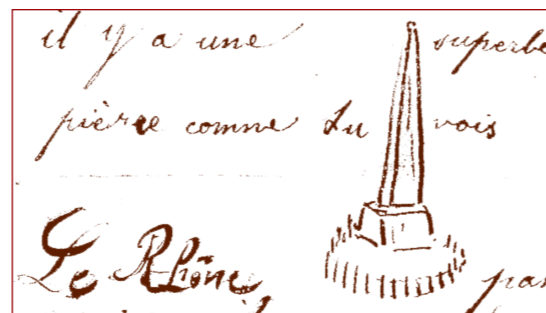 il y a une superbe
pièrre comme tu vois
Le Rhône, par